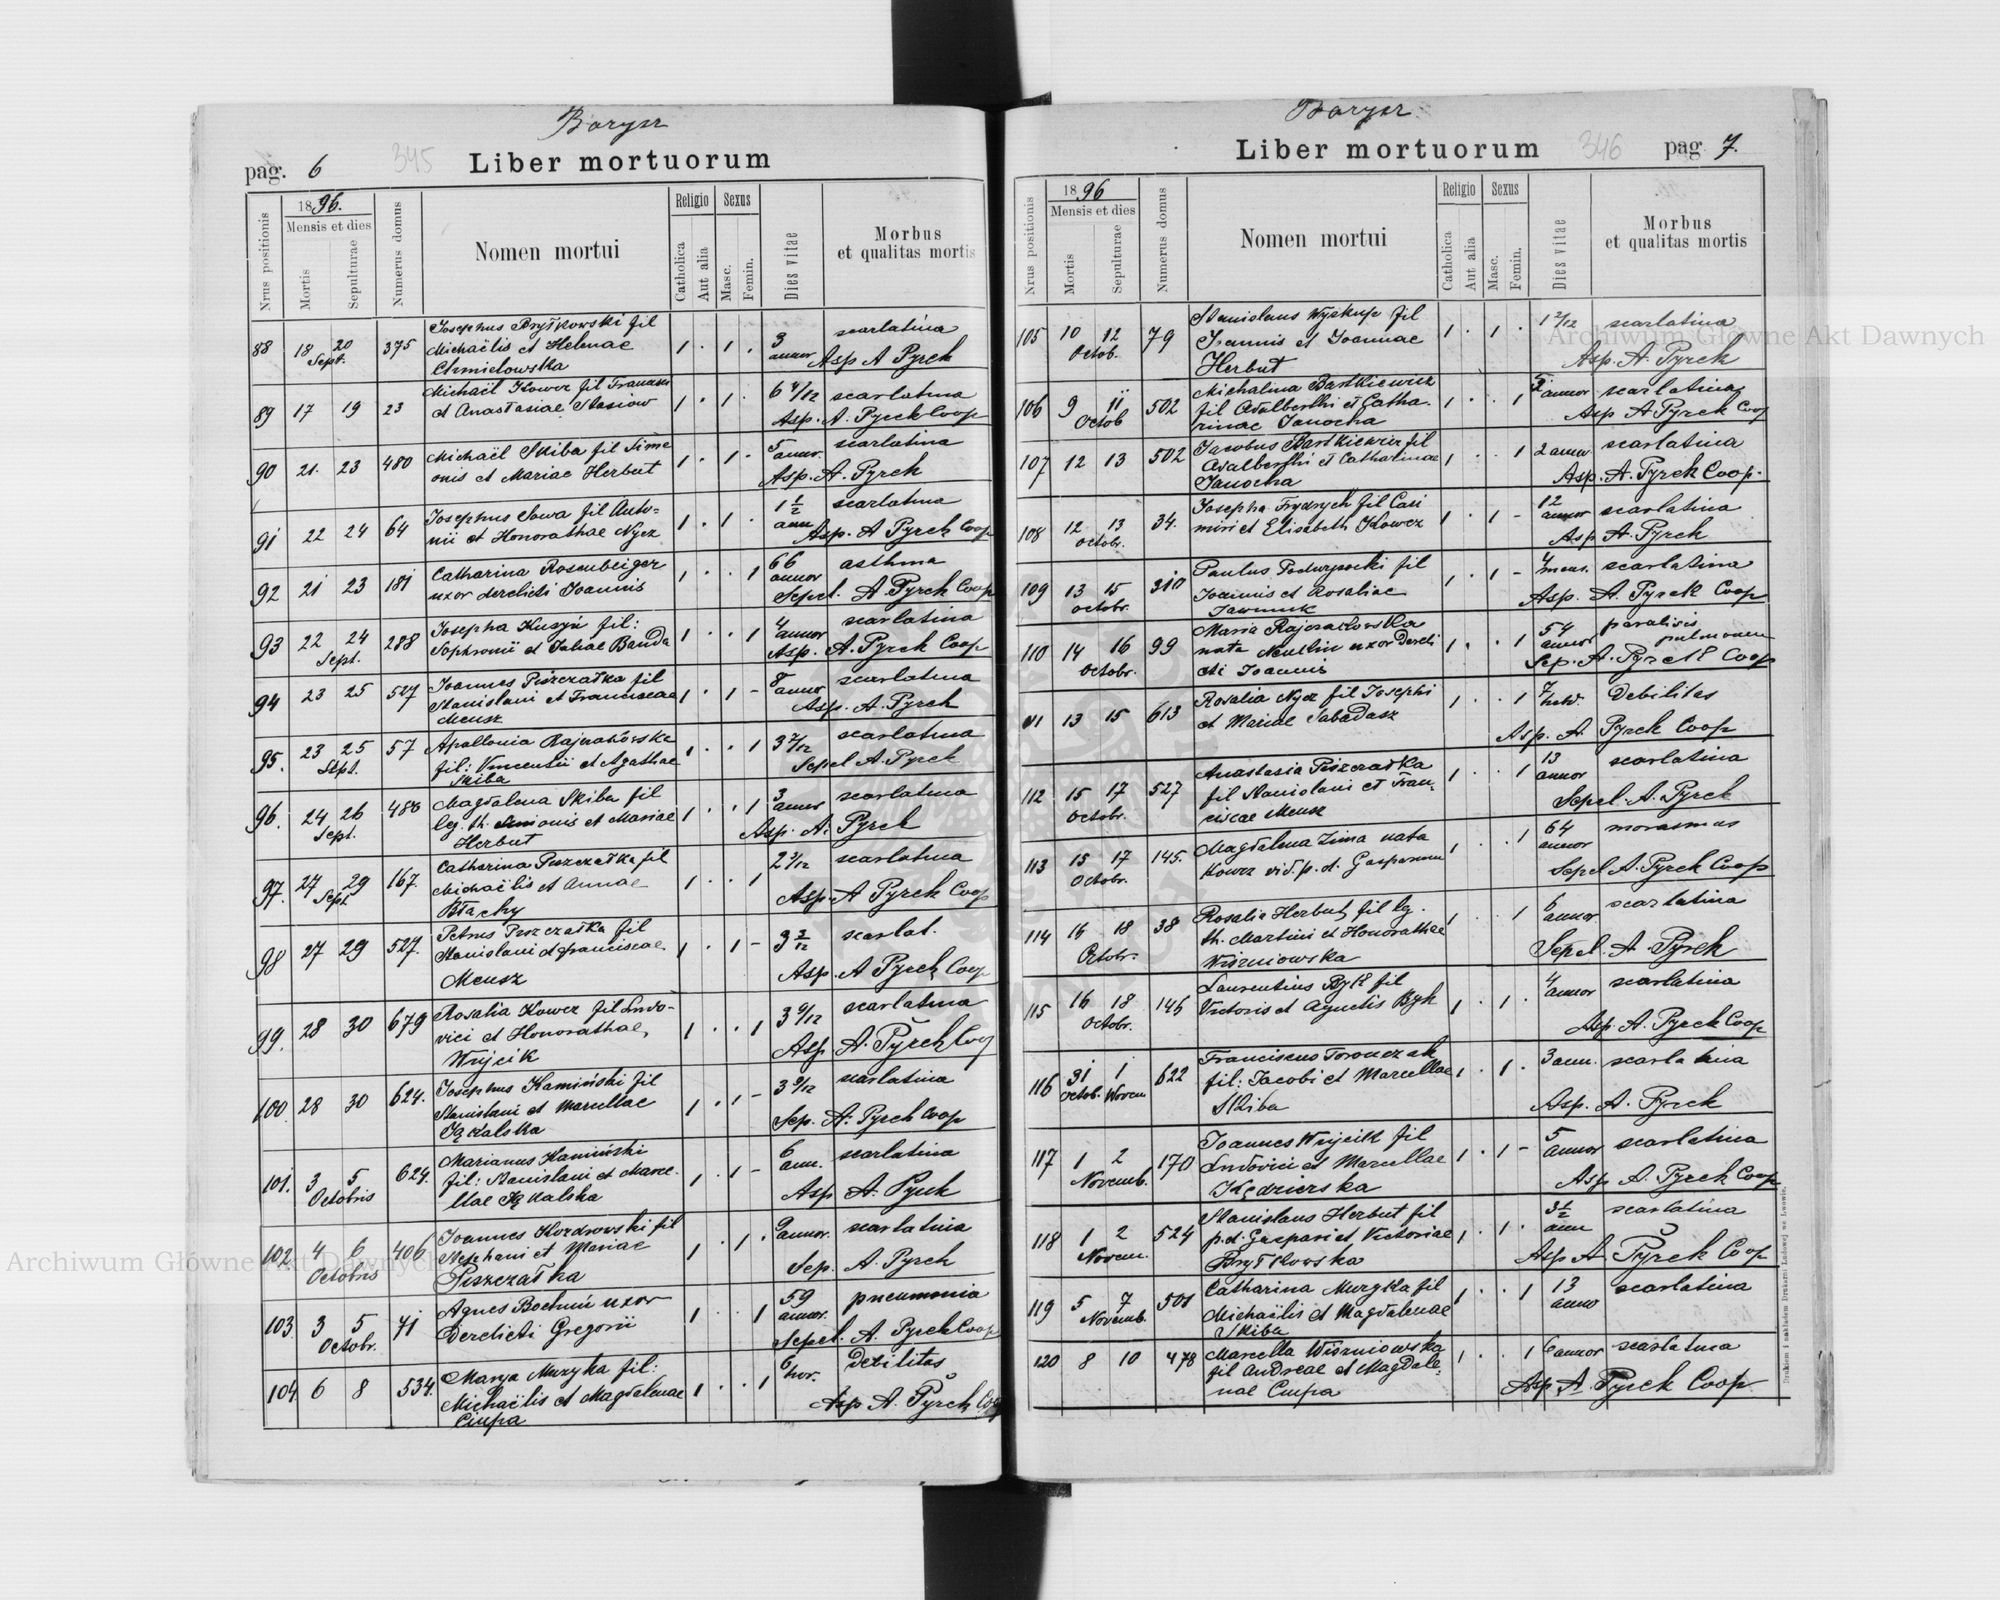 Borysz
pag. 6
345
Liber mortuorum
Nrus positionis
1896.
Mensis et dies
Mortis
Sepulturae
Numerus domus
Nomen mortui
Religio
Catholica
Aut alia
Sexus
Masc.
Femin.
Dies vitae
Morbus
et qualitas mortis
88 18 20 Sept. 375 Josephus Bryłkowski fil Michaëlis et Helenae Chmielowska 1 . 1 . 3 annor scarlatina Asp A Pyrck
89 17 19 23 Michaël Kowcz fil Francisci et Anastasiae Stasiow 1 . 1 . 6 4/12 scarlatina Asp. A. Pyrck Coop
90 21. 23 480 Michaël Skiba fil Sime onis et Mariae Herbut 1 . 1 . 5 annor. scarlatina Asp. A. Pyrck
91 22 24 64 Josephus Sowa fil Anto= nii et Honorathae Nycz 1 . 1 . 1 1/2 ann scarlatina Asp. A Pyrck Coop
92 21 23 181 Catharina Rosenbeiger uxor derelicti Joannis 1 . . 1 66 annor asthma Sepel. A Pyrck Coop
93 22 24 Sept. 288 Josepha Kuszyń fil: Sophronii et Juliae Banda 1 . . 1 4 annor scarlatina Asp. A. Pyrck Coop
94 23 25 527 Joannes Piszczatka fil Stanislani et Franciscae Meusz 1 . 1 - 8 annor scarlatina Asp. A. Pyrck
95. 23 25 Sept. 57 Apollonia Rajzakowska fil: Vincentii et Agathae Skiba 1 . . 1 3 7/12 scarlatina Sepel A. Pyrck
96. 24 26 Sept. 480 Magdalena Skiba fil leg. th. Simionis et Mariae Herbut 1 . . 1 3 annor scarlatina Asp. A. Pyrck
97. 27 29 Sept. 167. Catharina Piszczatka fil Michaëlis et Annae Btachy 1 . . 1 2 3/12 scarlatina Asp. A Pyrck Coop
98 27 29 527. Petrus Piszczatka fil Stanislani et Franciscae Meusz 1 . 1 - 3 3/12 scarlat. Asp. A Pyrck Coop
99. 28 30 679 Rosalia Kowcz fil Ludo- vici et Honorathae Wujcik 1 . . 1 3 9/12 scarlatina Asp A. Pyrck Coop
100 28 30 624. Josephus Kamiński fil Stanislani et Marcellae Jąkalska 1 . 1 - 3 9/12 scarlatina Sep. A. Pyrck Coop
101. 3 5 Octobris 624. Marianus Kamiński fil: Stanislani et Marce- llae Jąkalska 1 . 1 - 6 ann. scarlatina Asp A. Pyrck
102. 4 6 Octobris 406 Joannes Kozdrowski fil Stephani et Mariae Piszczatka 1 . 1 . 9 annor. scarlatina Sep. A. Pyrck
103. 3 5 Octobr. 71 Agnes Bochniń uxor derelicti Gregorii 1 . . 1 59 annor. pneumonia Sepel. A. Pyrck Coop
104 6 8 534. Marya Muzyka fil: Michaëlis et Magdalenae Ciupa 1 . . 1 6 hor. debilitas Asp A. Pyrck Coop
Borysz
Liber mortuorum
346
pag. 7.
Nrus positionis
1896
Mensis et dies
Mortis
Sepulturae
Numerus domus
Nomen mortui
Religio
Catholica
Aut alia
Sexus
Masc.
Femin.
Dies vitae
Morbus
et qualitas mortis
105 10 12 Octob. 79 Stanislaus Wyskup fil Joannis et Joannae Herbut 1 . 1 . 1 2/12 scarlatina Asp. A. Pyrck
106 9 11 Octob 502 Michalina Bartkiewicz fil Adalberthi et Catha- rinae Janocha 1 . . 1 5 annor scarlatina Asp A Pyrck Coop
107 12 13 502 Jacobus Bartkiewicz fil Adalberthi et Catharinae Janocha 1 . . 1 2 annor scarlatina Asp. A. Pyrck Coop.
108 12 13 octobr. 34. Josepha Frydrych fil Casi miri et Elisabeth Kowcz 1 . 1 - 12 annor scarlatina Asp A. Pyrck
109 13 15 octobr. 310 Paulus Podwysocki fil Joannis et Rosaliae 1 . 1 - 4 mens. scarlatina Asp. A. Pyrck Coop
110 14 16 Octobr. 99 Maria Rajzakowska nata uxor Dereli cti Joannis 1 . . 1 54 annor paralisis pulmonum Sep. A. Pyrck Coop
111 13 15 613 Rosalia Nycz fil Josephi et Mariae Sabadasz 1 . . 1 7 debilitas Asp. A. Pyrck Coop
112 15 17 Octobr. 527 Anastasia Piszczatka fil Stanislani et Fran- ciscae Meusz 1 . . 1 13 annor scarlatina Sepel. A. Pyrck
113 15 17 Octobr. 145. Magdalena Zima nata Kowcz vid. p. d. Gasparum 1 . . 1 64 annor morasmus Sepel A. Pyrck Coop
114 16 18 Octobr. 38 Rosalia Herbut fil lg. th. Martini et Honorathae Wiszniowska 1 . . 1 6 annor scarlatina Sepel. A. Pyrck
115 16 18 Octobr. 145 Laurentius Byk fil Victoris et Agnetis Byk 1 . 1 . 4 annor scarlatina Asp. A. Pyrck Coop
116 31 Octob. 1 Novem 622 Franciscus Toronczak fil: Jacobi et Marcellae Skiba 1 . 1 . 3 ann. scarlatina Asp. A. Pyrck
117 1 2 Novemb. 170 Joannes Wujcik fil Ludovici et Marcellae Kędzierska 1 . 1 - 5 annor scarlatina Asp A. Pyrck Coop
118 1 2 Novem. 524 Stanislaus Herbut fil p. d. Gaspari et Victoriae Bryłkowska 1 . 1 . 3 1/2 ann scarlatina Asp A Pyrck Coop
119 5 7 Novemb. 501 Catharina Muzyka fil Michaëlis et Magdalenae Skiba 1 . . 1 13 anno scarlatina
120 8 10 478 Marcella Wiszniowska fil Andreae et Magdale- nae Ciupa 1 . . 1 6 annor scarlatina Asp A Pyrck Coop
Drukiem i nakładem Drukarni Ludowej we Lwowie.
Archiwum Główne Akt Dawnych
Archiwum Główne Akt Dawnych